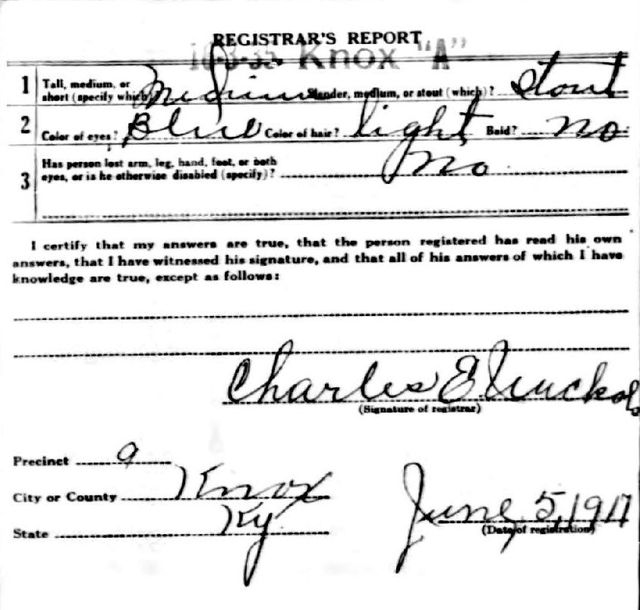 REGISTRAR'S REPORT
Knox "A"
1 Tall, medium, or short (specify which)? Medium Slender, medium, or stout (which)? Stout
2 Color of eyes? Blue Color of hair? light Bald? No
3 Has person lost arm, leg, hand, foot, or both
eyes, or is he otherwise disabled (specify)? No
I certify that my answers are true, that the person registered has read his own
answers, that I have witnessed his signature, and that all of his answers of which I have
knowledge are true, except as follows:
Charles E Nuckols
(Signature of registrar)
Precinct 9
City or County Knox
State Ky
June 5, 1917
(Date of registration)